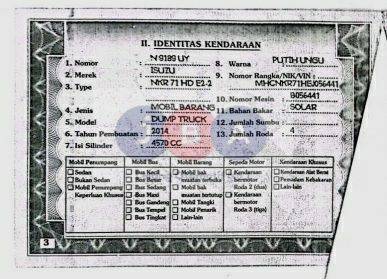 II. IDENTITAS KENDARAAN
1. Nomor : N 9189 UY
2. Merek : ISUZU
3. Type : NKR 71 HD E2-2
4. Jenis : MOBIL BARANG
5. Model : DUMP TRUCK
6. Tahun Pembuatan : 2014
7. Isi Silinder : 4570 CC
8. Warna : PUTIH UNGU
9. Nomor Rangka/NIK/VIN :
MHCNKR71HEJ056441
10. Nomor Mesin : B056441
11. Bahan Bakar : SOLAR
12. Jumlah Sumbu :
13. Jumlah Roda : 4
Mobil Penumpang
Sedan
Bukan Sedan
Mobil Penumpang
Keperluan Khusus
Mobil Bus
Bus Kecil
Bus Besar
Bus Sedang
Bus Maxi
Bus Gandeng
Bus Tempel
Bus Tingkat
Mobil Barang
Mobil bak
muatan terbuka
Mobil bak
muatan tertutup
Mobil Tangki
Mobil Penarik
Lain-lain
Sepeda Motor
Kendaraan
bermotor
Roda 2 (dua)
Kendaraan
bermotor
Roda 3 (tiga)
Kendaraan Khusus
Kendaraan Alat Berat
Pemadam Kebakaran
Lain-lain
3